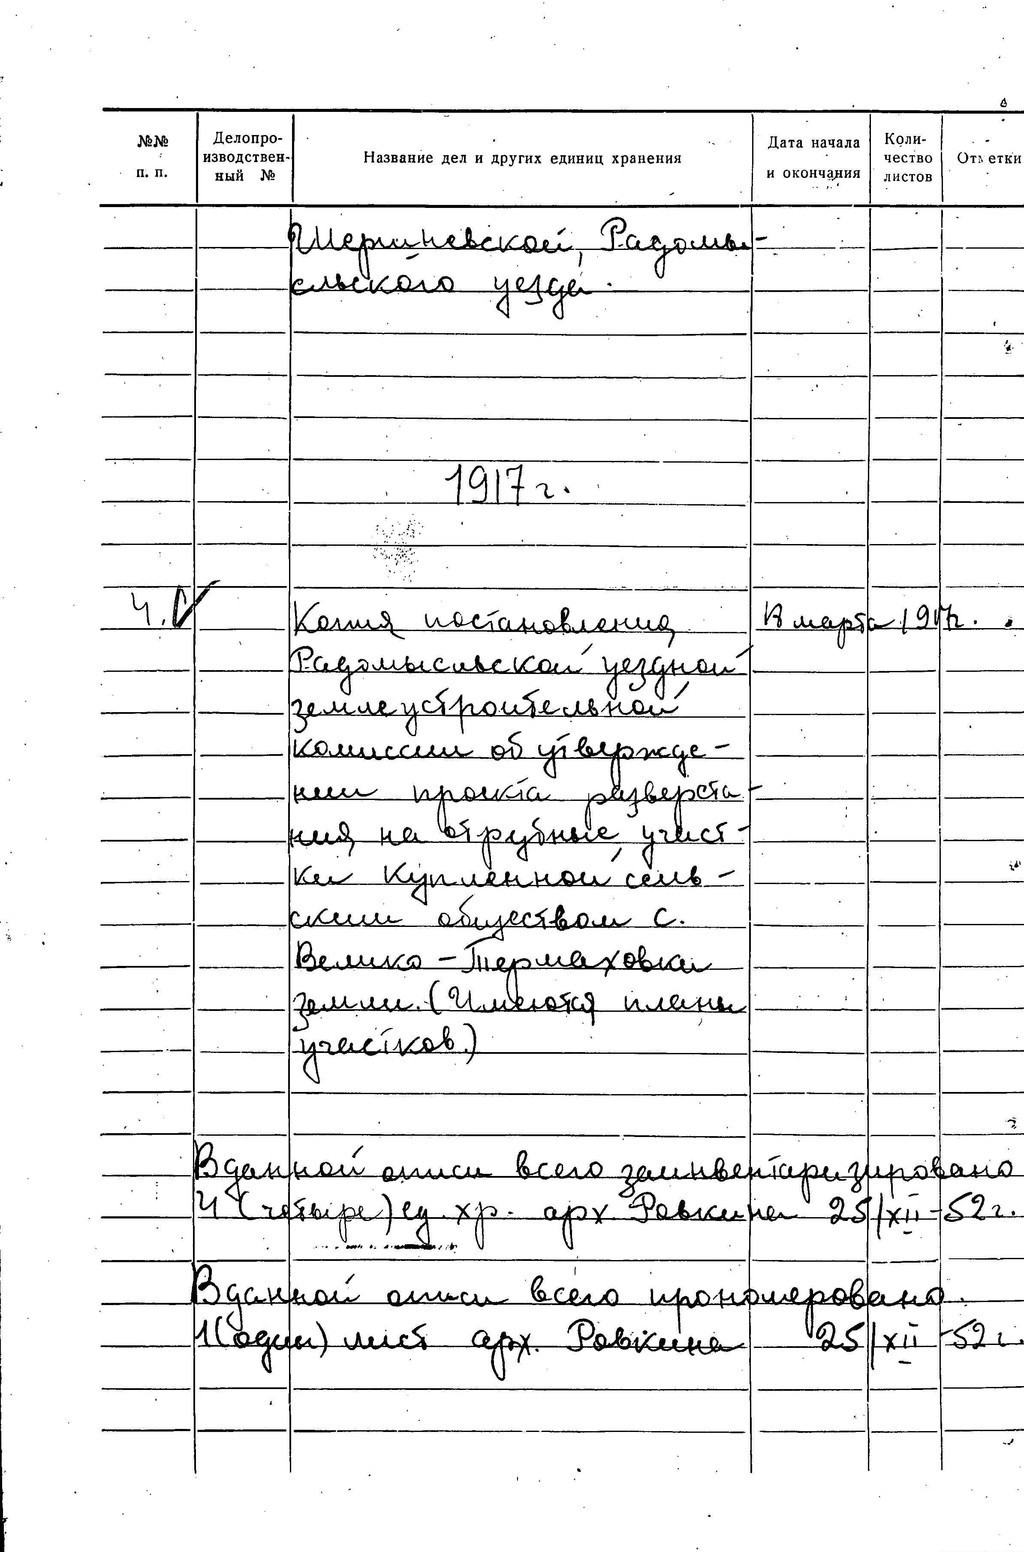 №№ п. п.
Делопро-
изводствен-
ный №
Название дел и других единиц хранения
Дата начала
и окончания
Коли-
чество
листов
Отметки
Радомы-
сльского уезда.
1917 г.
4.
Копия постановления
Радомысльской уездной
землеустроительной
комиссии об утвержде-
нии проекта разверста-
ния на отрубные участ-
ки купленной сель-
ским обществом с.
Велико-Термаховка
земли. (Имеются планы
участков.)
марта 1917г.
В данной описи всего заинвентаризировано
4 (четыре) ед. хр. арх. Ровкина 25/XII-52 г.
В данной описи всего прономеровано
1 (один) лист арх. Ровкина 25/XII-52 г.